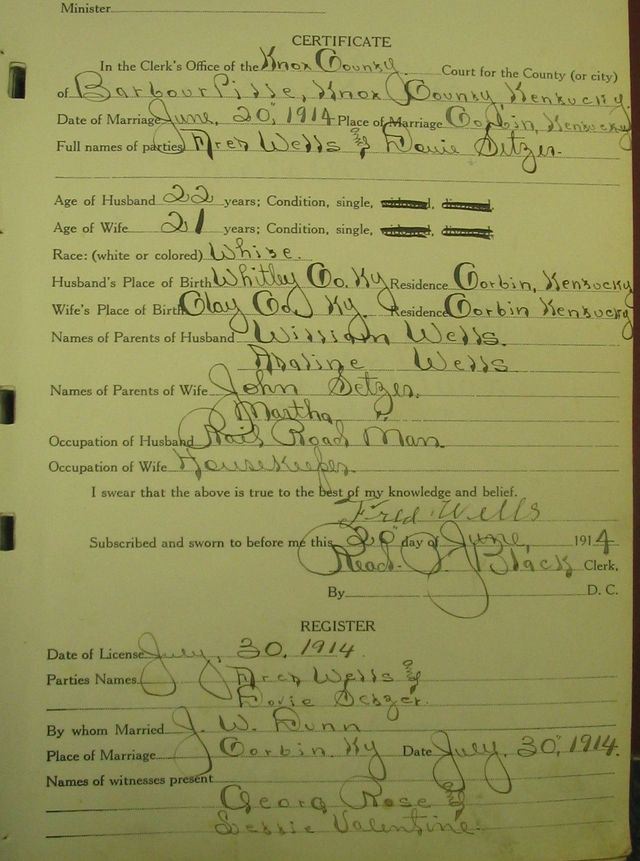 Minister
CERTIFICATE
In the Clerk's Office of the Knox County Court for the County (or city)
of Barbourville, Knox County, Kentucky.
Date of Marriage June, 20, 1914 Place of Marriage Corbin, Kentucky
Full names of parties Fred Wells & Dovie Setzer.
Age of Husband 22 years; Condition, single, widowed, divorced,
Age of Wife 21 years; Condition, single, widowed, divorced,
Race: (white or colored) White.
Husband's Place of Birth Whitley Co. Ky Residence Corbin, Kentucky
Wife's Place of Birth Clay Co, Ky. Residence Corbin Kentucky
Names of Parents of Husband William Wells.
Adaline Wells
Names of Parents of Wife John Setzer.
Martha "
Occupation of Husband Rail Road Man
Occupation of Wife Housekeeper
I swear that the above is true to the best of my knowledge and belief.
Fred Wells
Subscribed and sworn to before me this 20 day of June, 1914
Read P. Black Clerk,
By D. C.
REGISTER
Date of License July, 30, 1914
Parties Names Fred Wells &
Dovie Setzer.
By whom Married J. W. Dunn
Place of Marriage Corbin, Ky Date July, 30, 1914.
Names of witnesses present
Georg Rose &
Lessie Valentine